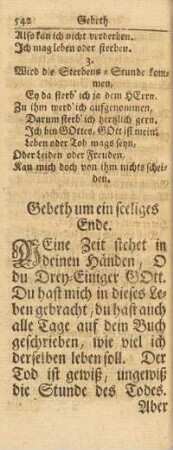 542 Gebeth
Also kan ich nicht verderben.
Ich mag leben oder sterben.
3.
Wird die Sterbens-Stunde kom-
men,
Ey da sterb' ich ja dem HErrn.
Zu ihm werd' ich aufgenommen,
Darum sterb' ich hertzlich gern.
Ich bin GOttes, GOtt ist mein,
Leben oder Tod mags seyn,
Oder Leiden oder Freuden,
Kan mich doch von ihm nichts schei-
den.
Gebeth um ein seeliges
Ende.
MEine Zeit stehet in
deinen Händen, O
du Drey-Einiger GOtt.
Du hast mich in dieses Le-
ben gebracht, du hast auch
alle Tage auf dein Buch
geschrieben, wie viel ich
derselben leben soll. Der
Tod ist gewiß, ungewiß
die Stunde des Todes.
Aber